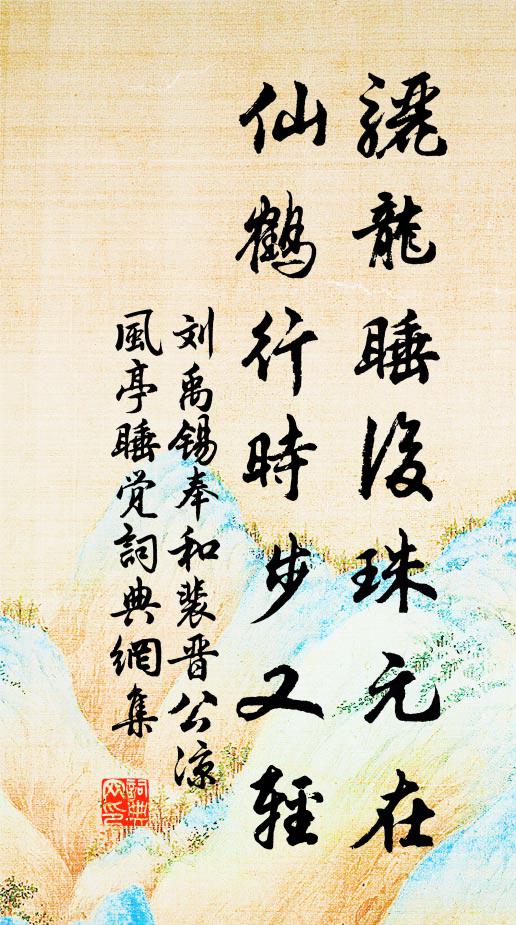 驪龍睡後珠元在
仙鶴行時步又輕
刘禹锡奉和裴晋公凉
風亭睡觉詞典網集
詞典
网印